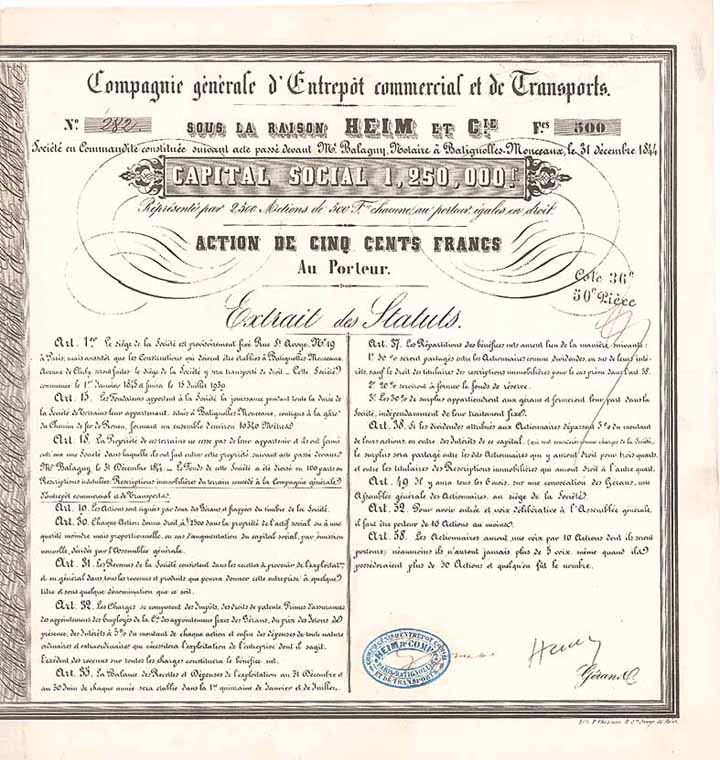 Compagnie générale d'Entrepôt commercial et de Transports.
N° 282. SOUS LA RAISON HEIM ET Cie Fcs 500
Société en Commandite constituée suivant acte passé devant Me Balagny, Notaire à Batignolles-Monceaux, le 31 décembre 1844
CAPITAL SOCIAL 1,250,000 f
Représenté par 2,500 Actions de 500 Fcs chacune, au porteur, égales en droit.
ACTION DE CINQ CENTS FRANCS
Au Porteur.
Cote 36e
50e Pièce
Extrait des Statuts.
Art. 1er Le siège de la Société est provisoirement fixé Rue St Avoye, No 19
à Paris; mais aussitôt que les Constructions qui doivent être établies à Batignolles-Monceaux,
Avenue de Clichy, seront faites, le siège de la Société y sera transporté de droit. Cette Société
commence le 1er Janvier 1845 et finira le 15 Juillet 1939.
Art. 15. Les Fondateurs apportent à la Société la jouissance pendant toute la durée de
la Société de Terrains leur appartenant, situés à Batignolles-Monceaux, contigus à la gare
du Chemin de fer de Rouen, formant un ensemble d'environ Mètres
Art. 18. La Propriété de ces terrains ne cesse pas de leur appartenir et ils ont formé
entr'eux une Société dans laquelle ils ont fait entrer cette propriété suivant acte passé devant
Me Balagny, le 31 Décembre 1844. Le Fonds de cette Société a été divisé en 100 parts ou
Rescriptions intitulées: Rescriptions immobilières du terrain concédé à la Compagnie générale
d'entrepôt commercial et de Transports.
Art. 10. Les Actions sont signées par deux des Gérans et frappées du timbre de la Société.
Art. 30. Chaque Action donne droit à 1/2500 dans la propriété de l'actif social ou à une
quotité moindre mais proportionnelle, en cas d'augmentation du capital social, par émission
nouvelle, décidée par l'Assemblée générale.
Art. 31. Les Revenus de la Société consistent dans les recettes à provenir de l'exploitation
et en général dans tous les revenus et produits que pourra donner cette entreprise à quelque
titre et sous quelque dénomination que ce soit.
Art. 32. Les Charges se composent des Impôts, des droits de patente, Primes d'assurances
des appointemens des Employés de la Cie des appointemens fixes des Gérans, du prix des jetons de
présence, des Intérêts à 5% du montant de chaque action et enfin des dépenses de toute nature
ordinaires et extraordinaires que nécessitera l'exploitation de l'entreprise dont il s'agit.
L'excédent des revenus sur toutes les charges constituera le bénéfice net.
Art. 33. La Balance des Recettes et Dépenses de l'exploitation au 31 Décembre et
au 30 Juin de chaque année sera établie dans la 1re quinzaine de Janvier et de Juillet.
Art. 37. Les Répartitions des bénéfices nets auront lieu de la manière suivante:
1° 50 % seront partagés entre les Actionnaires comme dividendes, en sus de leurs intérêts,
sauf le droit des titulaires des rescriptions immobilières pour le cas prévu dans l'art 38.
2° 20 % serviront à former le fonds de réserve.
3° Les 30 % de surplus appartiendront aux gérans et formeront leur part dans la
Société, indépendamment de leur traitement fixe.
Art. 38. Si les dividendes attribués aux Actionnaires dépassent 5% du montant
de leurs actions en outre des Intérêts de ce capital, (qui sont considérés comme charge de la Société),
le surplus sera partagé entre les dits Actionnaires qui y auront droit pour trois quarts,
et entre les titulaires des Rescriptions immobilières qui auront droit à l'autre quart.
Art. 49 Il y aura tous les 6 mois, sur une convocation des Gérans, une
Assemblée générale des Actionnaires, au siège de la Société
Art. 52. Pour avoir entrée et voix délibérative à l'Assemblée générale,
il faut être porteur de 10 Actions au moins.
Art. 58. Les Actionnaires auront une voix par 10 Actions dont ils seront
porteurs; néanmoins ils n'auront jamais plus de 3 voix même quand ils
posséderaient plus de 30 Actions et quelqu'en fût le nombre.
HEIM & COMPIE
PARIS-BATIGNOLLES
ET DE TRANSPORTS
Gérans.